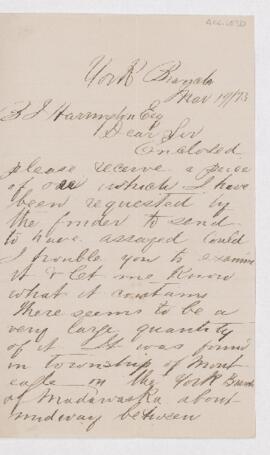 York Branch
Mar 19/73
B J Harrington Esq
Dear Sir
Enclosed
please receive a piece
of ore which I have
been requested by
the finder to send
to have assayed could
I trouble you to examine
it & let me know
what it contains
There seems to be a
very large quantity
of it It was found
in township of Mont
eagle on the York Branch
of Madawaska about
midway between